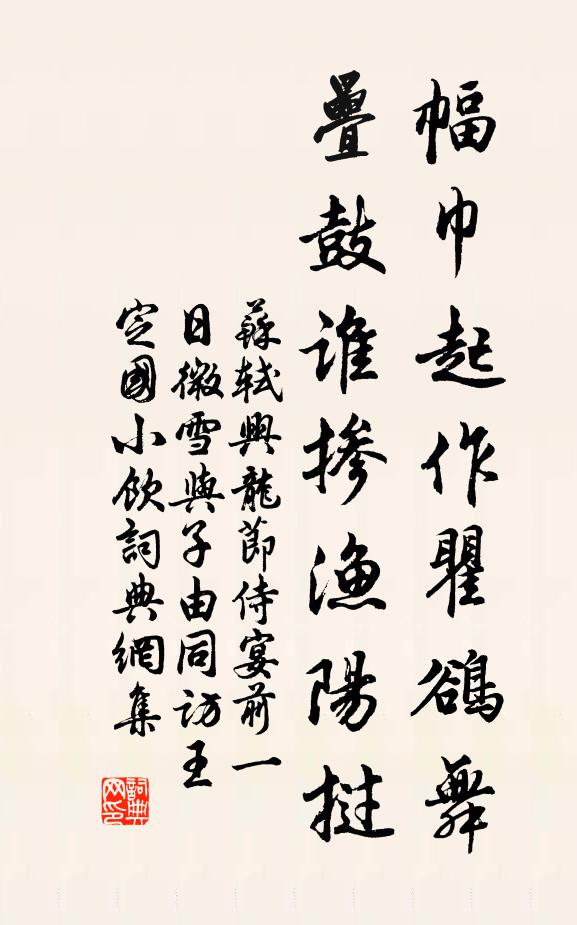 幅巾起作瞿鵒舞
疊鼓谁掺渔陽撾
蘇軾興龍節侍宴前一
日微雪與子由同訪王
定國小飲詞典網集
詞典网印